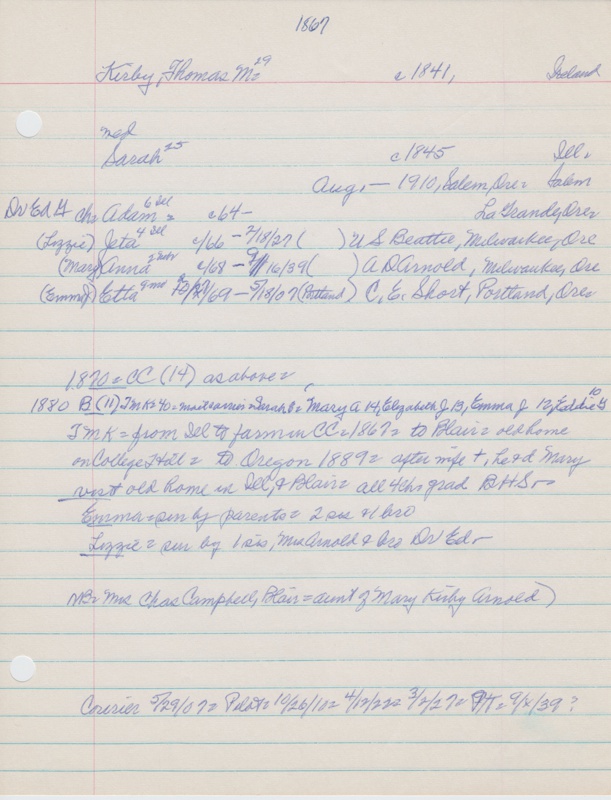 1867
Kirby, Thomas M= 29 c1841, Ireland
med
Sarah 25 c1845 Ill=
Aug, — 1910, Salem, Ore= Salem
Dr Ed G ch= Adam 6 Ill = c64 — La Grande, Ore=
(Lizzie) Jeta 4 Ill c/66 — 2/18/27 ( ) U S Beattie, Milwaukee, Ore
(Mary) Anna 2 c/68 — 9/16/39 ( ) A D Arnold, Milwaukee, Ore
(Emma J) Etta 9mo /69 — 5/18/07 (Portland) C, E, Short, Portland, Ore=
1870 = CC (14) as above =
1880 B (11) TMK= 40 = mail carrier = Sarah = Mary A 14, Elizabeth J 13, Emma J 12, Eddie G 10
TMK = from Ill to farm in CC = 1867 = to Blair = old home
on College Hill = to Oregon 1889 = after wife +, he & d Mary
visit old home in Ill, & Blair = all 4 ch= grad BHS —
Emma = sur by parents = 2 sis & 1 bro
Lizzie = sur by 1 sis, Mrs Arnold & bro Dr Ed —
NB= Mrs Chas Campbell, Blair = aunt of Mary Kirby Arnold)
Courier 5/29/07 = Pilot = 10/26/10 = 4/12/22 = 3/2/27 = PT = 9/x/39 ?